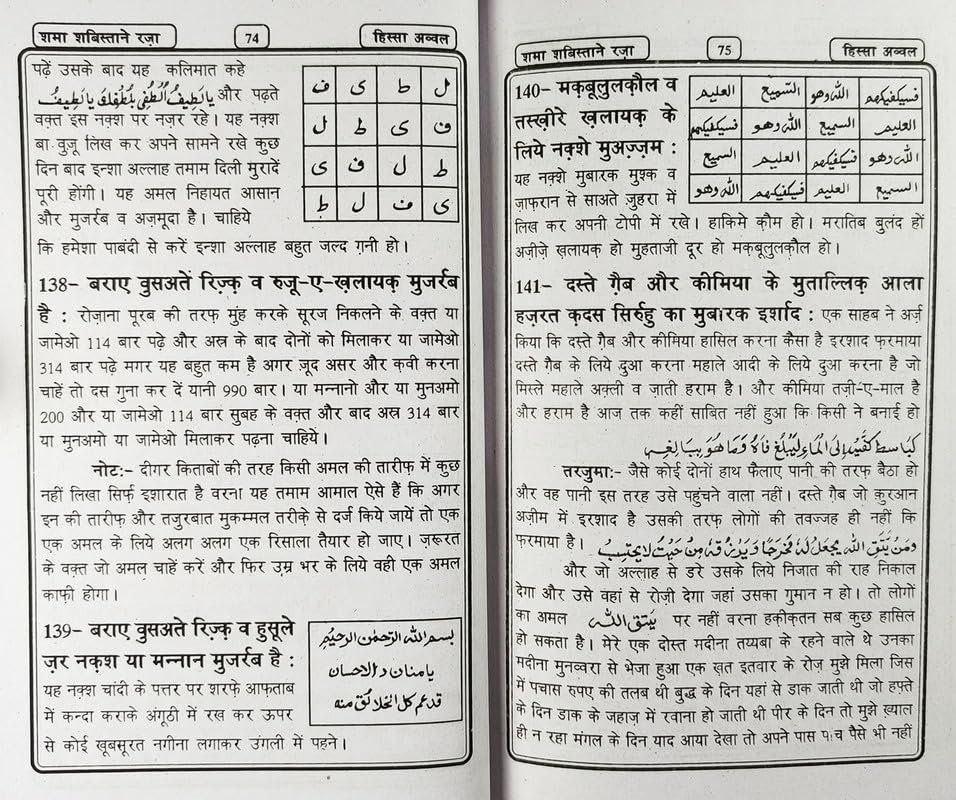 शमा शबिस्ताने रज़ा
74
हिस्सा अव्वल
पढ़ें उसके बाद यह कलिमात कहे
يالطيف ألطفى بلطفك يالطيف और पढ़ते
वक़्त इस नक़्श पर नज़र रहे। यह नक़्श
बा वुजू लिख कर अपने सामने रखे कुछ
दिन बाद इन्शा अल्लाह तमाम दिली मुरादें
पूरी होंगी। यह अमल निहायत आसान
और मुजर्रब व अज़मूदा है। चाहिये
ل ط ی ف
ف ی ط ل
ط ل ف ی
ی ف ل ط
कि हमेशा पाबंदी से करें इन्शा अल्लाह बहुत जल्द ग़नी हो।
138- बराए वुसअतें रिज़्क़ व रुजू-ए-ख़लायक़ मुजर्रब
है : रोज़ाना पूरब की तरफ़ मुंह करके सूरज निकलने के वक़्त या
जामेओ 114 बार पढ़े और अस्र के बाद दोनों को मिलाकर या जामेओ
314 बार पढ़े मगर यह बहुत कम है अगर ज़ूद असर और क़वी करना
चाहें तो दस गुना कर दें यानी 990 बार। या मन्नानो और या मुनअमो
200 और या जामेओ 114 बार सुबह के वक़्त और बाद अस्र 314 बार
या मुनअमो या जामेओ मिलाकर पढ़ना चाहिये।
नोटः- दीगर किताबों की तरह किसी अमल की तारीफ़ में कुछ
नहीं लिखा सिर्फ़ इशारात है वरना यह तमाम आमाल ऐसे हैं कि अगर
इन की तारीफ़ और तजुरबात मुकम्मल तरीक़े से दर्ज किये जायें तो एक
एक अमल के लिये अलग अलग एक रिसाला तैयार हो जाए। ज़रूरत
के वक़्त जो अमल चाहें करें और फिर उम्र भर के लिये वही एक अमल
काफ़ी होगा।
139- बराए वुसअते रिज़्क़ व हुसूले
ज़र नक़्श या मन्नान मुजर्रब है :
यह नक़्श चांदी के पत्तर पर शरफ़े आफ़ताब
में कन्दा कराके अंगूठी में रख कर ऊपर
से कोई ख़ूबसूरत नगीना लगाकर उंगली में पहने।
بسم الله الرحمن الرحيم
يا منان ذ الاحسان
قد عم كل الخلائق منه
शमा शबिस्ताने रज़ा
75
हिस्सा अव्वल
140- मक़बूलुलक़ौल व
तस्ख़ीरे ख़लायक़ के
लिये नक़्शे मुअज़्ज़म :
यह नक़्शे मुबारक मुश्क व
ज़ाफ़रान से साअते ज़ुहरा में
فسيكفيكهم الله وهو السميع العليم
العليم السميع الله وهو فسيكفيكهم
الله وهو فسيكفيكهم العليم السميع
السميع العليم فسيكفيكهم الله وهو
लिख कर अपनी टोपी में रखे। हाकिमे क़ौम हो। मरातिब बुलंद हों
अज़ीज़े ख़लायक़ हो मुहताजी दूर हो मक़बूलुलक़ौल हो।
141- दस्ते ग़ैब और कीमिया के मुताल्लिक़ आला
हज़रत क़दस सिर्रुहु का मुबारक इर्शाद : एक साहब ने अर्ज़
किया कि दस्ते ग़ैब और कीमिया हासिल करना कैसा है इरशाद फ़रमाया
दस्ते ग़ैब के लिये दुआ करना महाले आदी के लिये दुआ करना है जो
मिस्ले महाले अक़्ली व ज़ाती हराम है। और कीमिया तज़ी-ए-माल है
और हराम है आज तक कहीं साबित नहीं हुआ कि किसी ने बनाई हो
كباسط كفيه إلى الماء ليبلغ فاه وما هو ببالغه
तरजुमाः- जैसे कोई दोनों हाथ फैलाए पानी की तरफ़ बैठा हो
और वह पानी इस तरह उसे पहुंचने वाला नहीं। दस्ते ग़ैब जो क़ुरआन
अज़ीम में इरशाद है उसकी तरफ़ लोगों की तवज्जह ही नहीं कि
फ़रमाया है। ومن يتق الله يجعل له مخرجا ويرزقه من حيث لا يحتسب
और जो अल्लाह से डरे उसके लिये निजात की राह निकाल
देगा और उसे वहां से रोज़ी देगा जहां उसका गुमान न हो। तो लोगों
का अमल يتق الله पर नहीं वरना हक़ीक़तन सब कुछ हासिल
हो सकता है। मेरे एक दोस्त मदीना तय्यबा के रहने वाले थे उनका
मदीना मुनव्वरा से भेजा हुआ एक ख़त इतवार के रोज़ मुझे मिला जिस
में पचास रुपए की तलब थी बुद्ध के दिन यहां से डाक जाती थी जो हफ़्ते
के दिन डाक के जहाज़ में रवाना हो जाती थी पीर के दिन तो मुझे ख़्याल
ही न रहा मंगल के दिन याद आया देखा तो अपने पास पांच पैसे भी नहीं